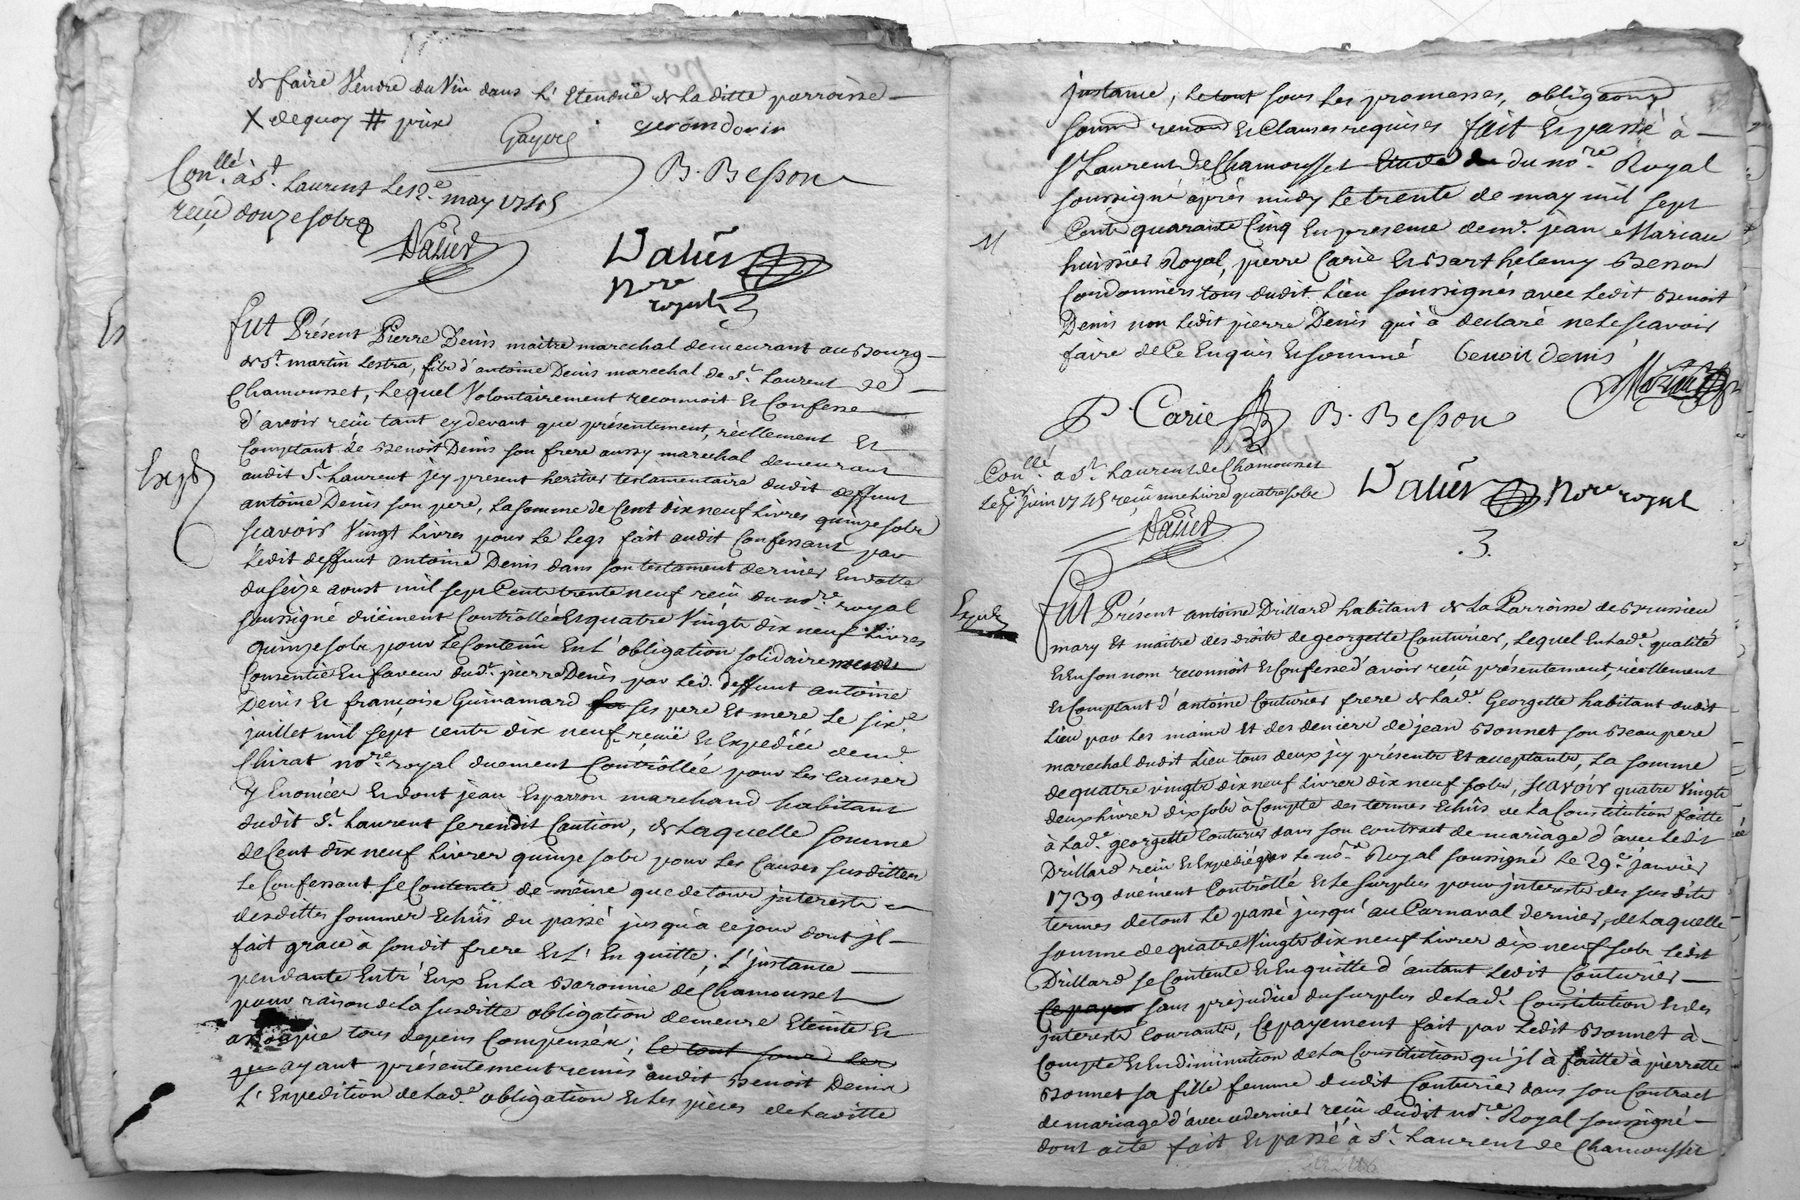 de faire Vendre du Vin dans L'Etendüe de La ditte parroisse
X de quoy # prix
Gayere
geromdorin
B. Besson
Con.llé à S.t Laurent Le 12.e may 1745
reçu douze sols
Dalier
Dalier
No.re
royal
Fut Présent Pierre Denis maitre marechal demeurant au Bourg
Et
de S.t martin Lestra, fils d'antoine Denis marechal de S.t Laurent de
Chamousset, Lequel Volontairement reconnoit Et Confesse
d'avoir reçu tant cy devant que présentement, réellement Et
Comptant de Benoit Denis son frere aussy marechal demeurant
Exp.
audit S.t Laurent jcy present heritier testamentaire dudit deffunt
antoine Denis son pere, La somme de Cent dix neuf Livres quinze sols
scavoir Vingt Livres pour Le Legs fait audit Confessant par
Ledit deffunt antoine Denis dans son testament dernier En datte
du seize aoust mil sept Cents trente neuf reçu du no.re royal
soussigné düement Controllé Et quatre Vingts dix neuf Livres
quinze sols pour Le Contenu En L'obligation solidairement
Consentie En faveur dud.t pierre Denis par Led. deffunt antoine
Denis Et françoise Guinamard ses pere Et mere Le six.e
juillet mil sept cents dix neuf reçuë Et Expediée de m.e
Chirat no.re royal duement Controllée pour Les causes
y Enoncées Et dont jean Esparron marchand habitant
dudit S.t Laurent se rendit Caution, de Laquelle somme
de Cent dix neuf Livres quinze sols pour Les Causes susdittes
Le Confessant se Contente de même que de tous jnterests
desdittes sommes Echus du passé jusqu'a ce jour dont jl
fait grace à sondit frere Et L'En quitte; L'jnstance
pendante Entr'Eux En La Baronnie de Chamousset
pour raison de La susditte obligation demeure Eteinte Et
assopie tous depens Compensés; Le tout sous Les
ayant présentement remis audit Benoit Denis
L'Expedition de Lad.e obligation Et Les pièces de Laditte
jnstance, Le tout sous Les promesses, obligaons,
soumd renond Et Clauses requises fait Et passé à
S.t Laurent de Chamousset Etude du no.re Royal
soussigné après midy Le trente de may mil sept
Cents quarante Cinq En presence de m.e jean Mariau
huissier Royal, pierre Carie Et Barthelemy Besson
Cordonniers tous dudit Lieu soussignés avec Ledit Benoit
Denis non Ledit pierre Denis qui à declaré ne Le scavoir
faire de Ce Enquis Et sommé benoit denis
Mariau
P. Carie B. Besson
Con.llé à S.t Laurent de Chamousset
Le juin 1745 reçu une Livre quatre sols
Dalier
Dalier No.re royal
.3.
Fut Présent antoine Drillard habitant de La Parroisse de Brussieu
mary Et maitre des droits de georgette Couturier, Lequel En Lad.e qualité
Et En son nom reconnoit Et Confesse d'avoir reçu présentement, réellement
Et Comptant d'antoine Couturier frere de Lad.e Georgette habitant dudit
Lieu par Les mains Et des deniers de jean Bonnet son Beau pere
marechal dudit Lieu tous deux jcy présents Et acceptants, La somme
de quatre vingts dix neuf Livres dix neuf sols, scavoir quatre Vingts
deux Livres dix sols à Compte des termes Echûs de La Constitution faitte
à Lad.e georgette Couturier dans son contract de mariage d'avec Ledit
Drillard reçu Et Expedié par Le no.re Royal soussigné Le 29.e janvier
1739 duement Controllé Et Le surplus pour jnterests des susdits
termes de tout Le passé jusqu'au Carnaval dernier, de Laquelle
somme de quatre Vingts dix neuf Livres dix neuf sols Ledit
Drillard se Contente Et En quitte d'autant Ledit Couturier
Ce payem sans préjudice du surplus de Lad.e Constitution Et des
jnterests Courants, Ce payement fait par Ledit Bonnet à
Compte Et En diminution de La Constitution qu'jl à faitte à pierrette
Bonnet sa fille femme dudit Couturier dans son Contract
de mariage d'avec ce dernier reçu dudit no.re Royal soussigné
dont acte fait Et passé à S.t Laurent de Chamousset